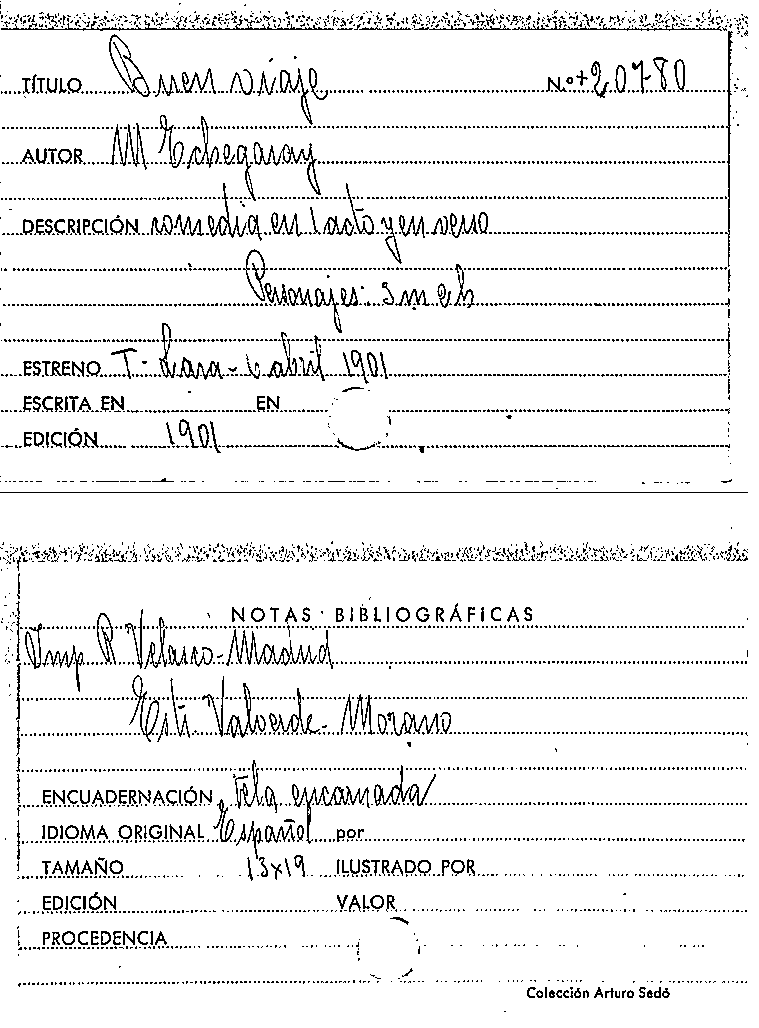 TÍTULO Buen viaje N.º + 20780
AUTOR M Echegaray
DESCRIPCIÓN comedia en 1 acto y en verso
Personajes: 3 m 2 h
ESTRENO T. Lara - 6 abril 1901
ESCRITA EN EN
EDICIÓN 1901
NOTAS BIBLIOGRÁFICAS
Imp R Velasco - Madrid
Valverde - Morano
ENCUADERNACIÓN Tela encarnada
IDIOMA ORIGINAL Español por
TAMAÑO 13x19 ILUSTRADO POR
EDICIÓN VALOR
PROCEDENCIA
Colección Arturo Sedó